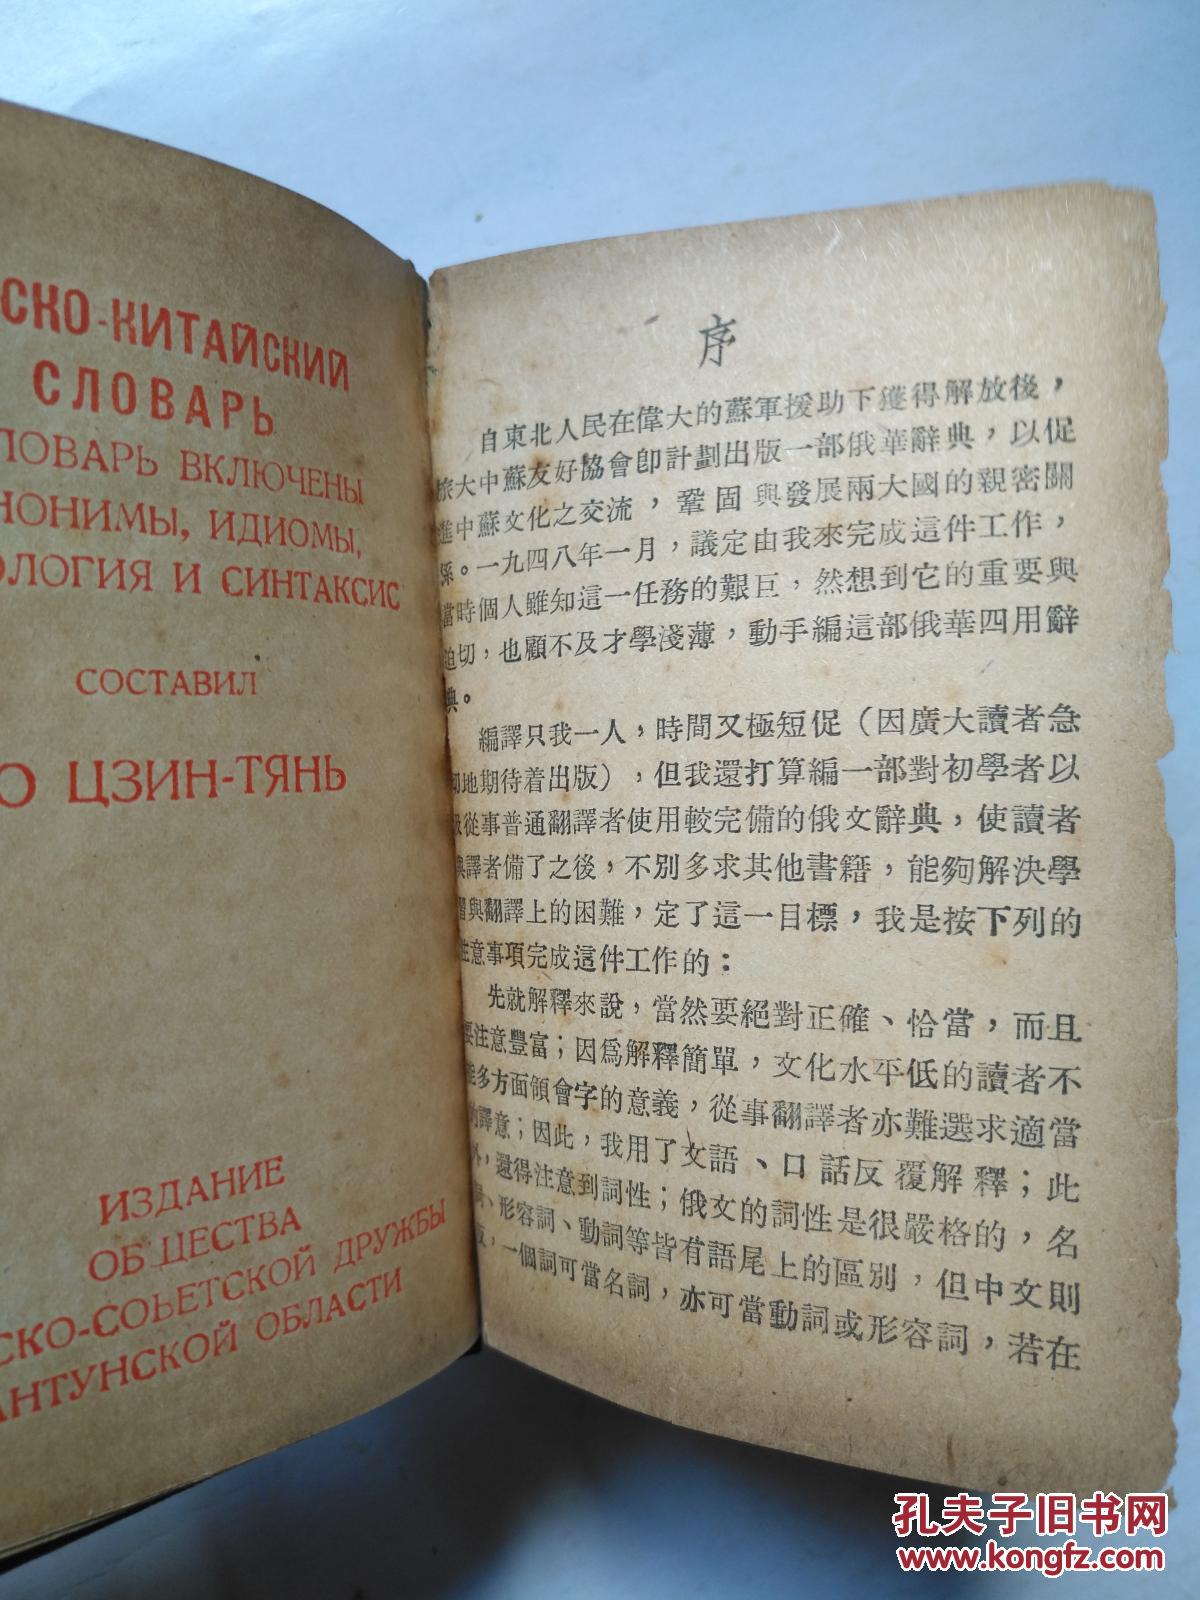 СКО-КИТАЙСКИЙ
СЛОВАРЬ
ЛОВАРЬ ВКЛЮЧЕНЫ
НОНИМЫ, ИДИОМЫ,
ОЛОГИЯ И СИНТАКСИС
СОСТАВИЛ
О ЦЗИН-ТЯНЬ
ИЗДАНИЕ
ОБЩЕСТВА
СКО-СОВЕТСКОЙ ДРУЖБЫ
АНТУНСКОЙ ОБЛАСТИ
序
自東北人民在偉大的蘇軍援助下獲得解放後，
旅大中蘇友好協會卽計劃出版一部俄華辭典，以促
進中蘇文化之交流，鞏固與發展兩大國的親密關
係。一九四八年一月，議定由我來完成這件工作，
當時個人雖知這一任務的艱巨，然想到它的重要與
迫切，也顧不及才學淺薄，動手編這部俄華四用辭
典。
編譯只我一人，時間又極短促（因廣大讀者急
切地期待着出版），但我還打算編一部對初學者以
及從事普通翻譯者使用較完備的俄文辭典，使讀者
與譯者備了之後，不別多求其他書籍，能夠解決學
習與翻譯上的困難，定了這一目標，我是按下列的
注意事項完成這件工作的：
先就解釋來說，當然要絕對正確、恰當，而且
要注意豐富；因爲解釋簡單，文化水平低的讀者不
能多方面領會字的意義，從事翻譯者亦難選求適當
的譯意；因此，我用了文語、口話反覆解釋；此
外，還得注意到詞性；俄文的詞性是很嚴格的，名
詞、形容詞、動詞等皆有語尾上的區別，但中文則
反，一個詞可當名詞，亦可當動詞或形容詞，若在
孔夫子旧书网
www.kongfz.com